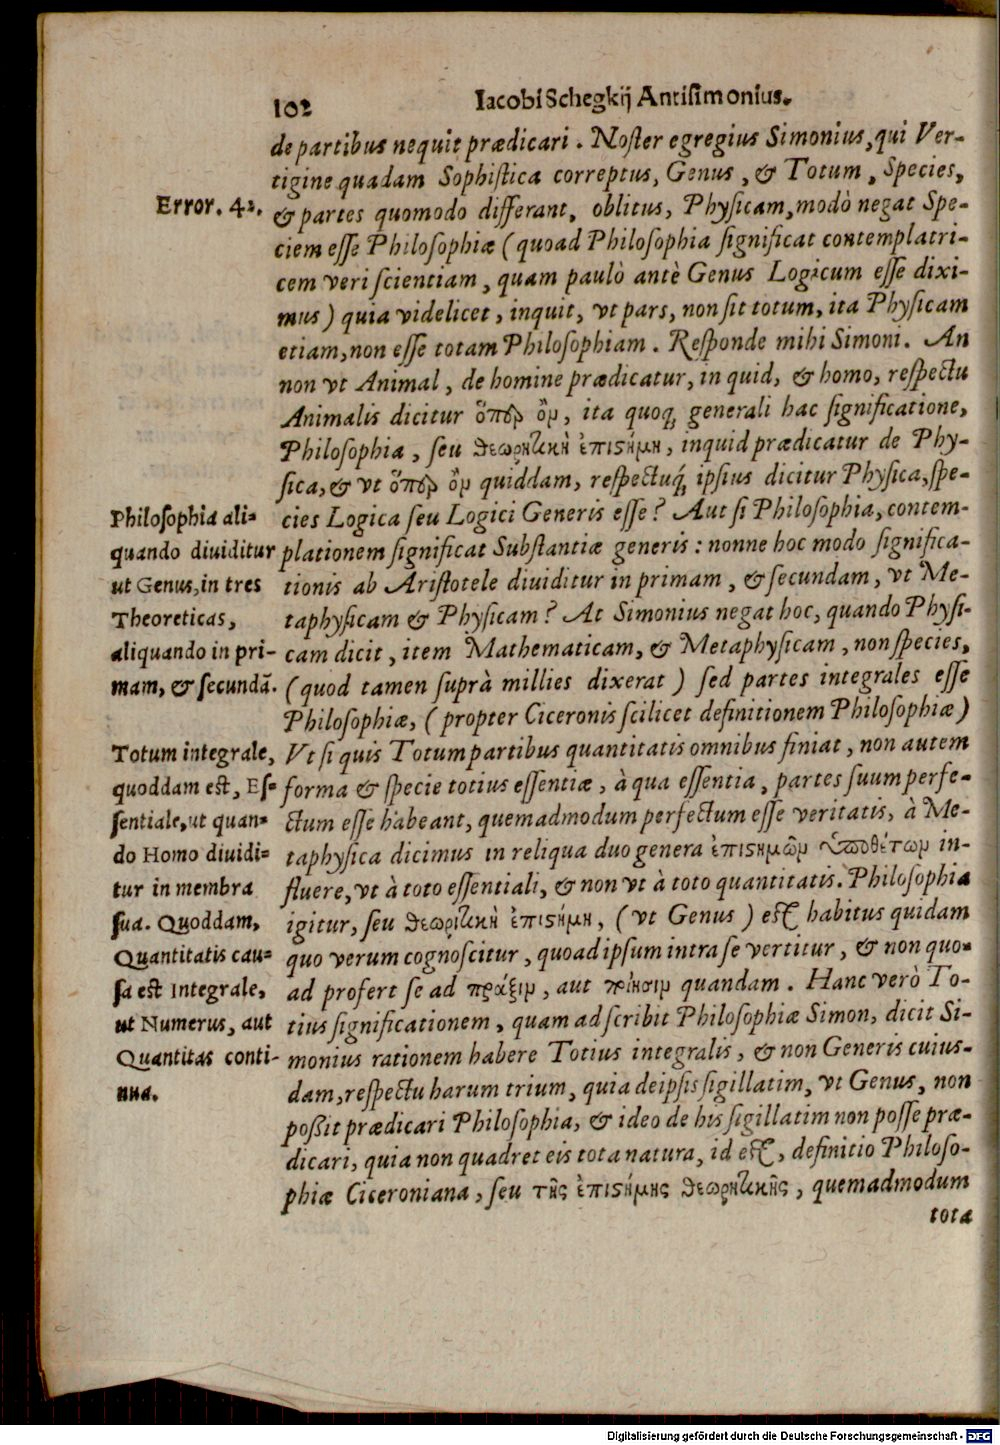 102 Iacobi Schegkij Antisimonius.
de partibus nequit prædicari. Noster egregius Simonius, qui Ver-
tigine quadam Sophistica correptus, Genus, & Totum, Species,
Error. 42.
& partes quomodo differant, oblitus, Physicam, modò negat Spe-
ciem esse Philosophiæ (quoad Philosophia significat contemplatri-
cem veri scientiam, quam paulò antè Genus Logicum esse dixi-
mus) quia videlicet, inquit, vt pars, non sit totum, ita Physicam
etiam, non esse totam Philosophiam. Responde mihi Simoni. An
non vt Animal, de homine prædicatur, in quid, & homo, respectu
Animalis dicitur ὅπερ ὂν, ita quoq; generali hac significatione,
Philosophia, seu θεωρητικὴ ἐπιστήμη, inquid prædicatur de Phy-
sica, & vt ὅπερ ὂν quiddam, respectuq́; ipsius dicitur Physica, spe-
cies Logica seu Logici Generis esse? Aut si Philosophia, contem-
plationem significat Substantiæ generis: nonne hoc modo significa-
tionis ab Aristotele diuiditur in primam, & secundam, vt Me-
taphysicam & Physicam? At Simonius negat hoc, quando Physi-
cam dicit, item Mathematicam, & Metaphysicam, non species,
(quod tamen suprà millies dixerat) sed partes integrales esse
Philosophiæ, (propter Ciceronis scilicet definitionem Philosophiæ)
Vt si quis Totum partibus quantitatis omnibus finiat, non autem
forma & specie totius essentiæ, à qua essentia, partes suum perfe-
ctum esse habeant, quemadmodum perfectum esse veritatis, à Me-
taphysica dicimus in reliqua duo genera ἐπιστημῶν ὑποθέτων in-
fluere, vt à toto essentiali, & non vt à toto quantitatis. Philosophia
igitur, seu θεωριτικὴ ἐπιστήμη, (vt Genus) est habitus quidam
quo verum cognoscitur, quoad ipsum intra se vertitur, & non quo-
ad profert se ad πράξιν, aut ποίησιν quandam. Hanc verò To-
tius significationem, quam adscribit Philosophiæ Simon, dicit Si-
monius rationem habere Totius integralis, & non Generis cuius-
dam, respectu harum trium, quia de ipsis sigillatim, vt Genus, non
poßit prædicari Philosophia, & ideo de his sigillatim non posse præ-
dicari, quia non quadret eis tota natura, id est, definitio Philoso-
phiæ Ciceroniana, seu τῆς ἐπιστήμης θεωρητικῆς, quemadmodum
tota
Philosophia ali-
quando diuiditur
ut Genus, in tres
Theoreticas,
aliquando in pri-
mam, & secundã.
Totum integrale,
quoddam est, Es-
sentiale, ut quan-
do Homo diuidi-
tur in membra
sua. Quoddam,
Quantitatis cau-
sa est Integrale,
ut Numerus, aut
Quantitas conti-
nua.
Digitalisierung gefördert durch die Deutsche Forschungsgemeinschaft - DFG